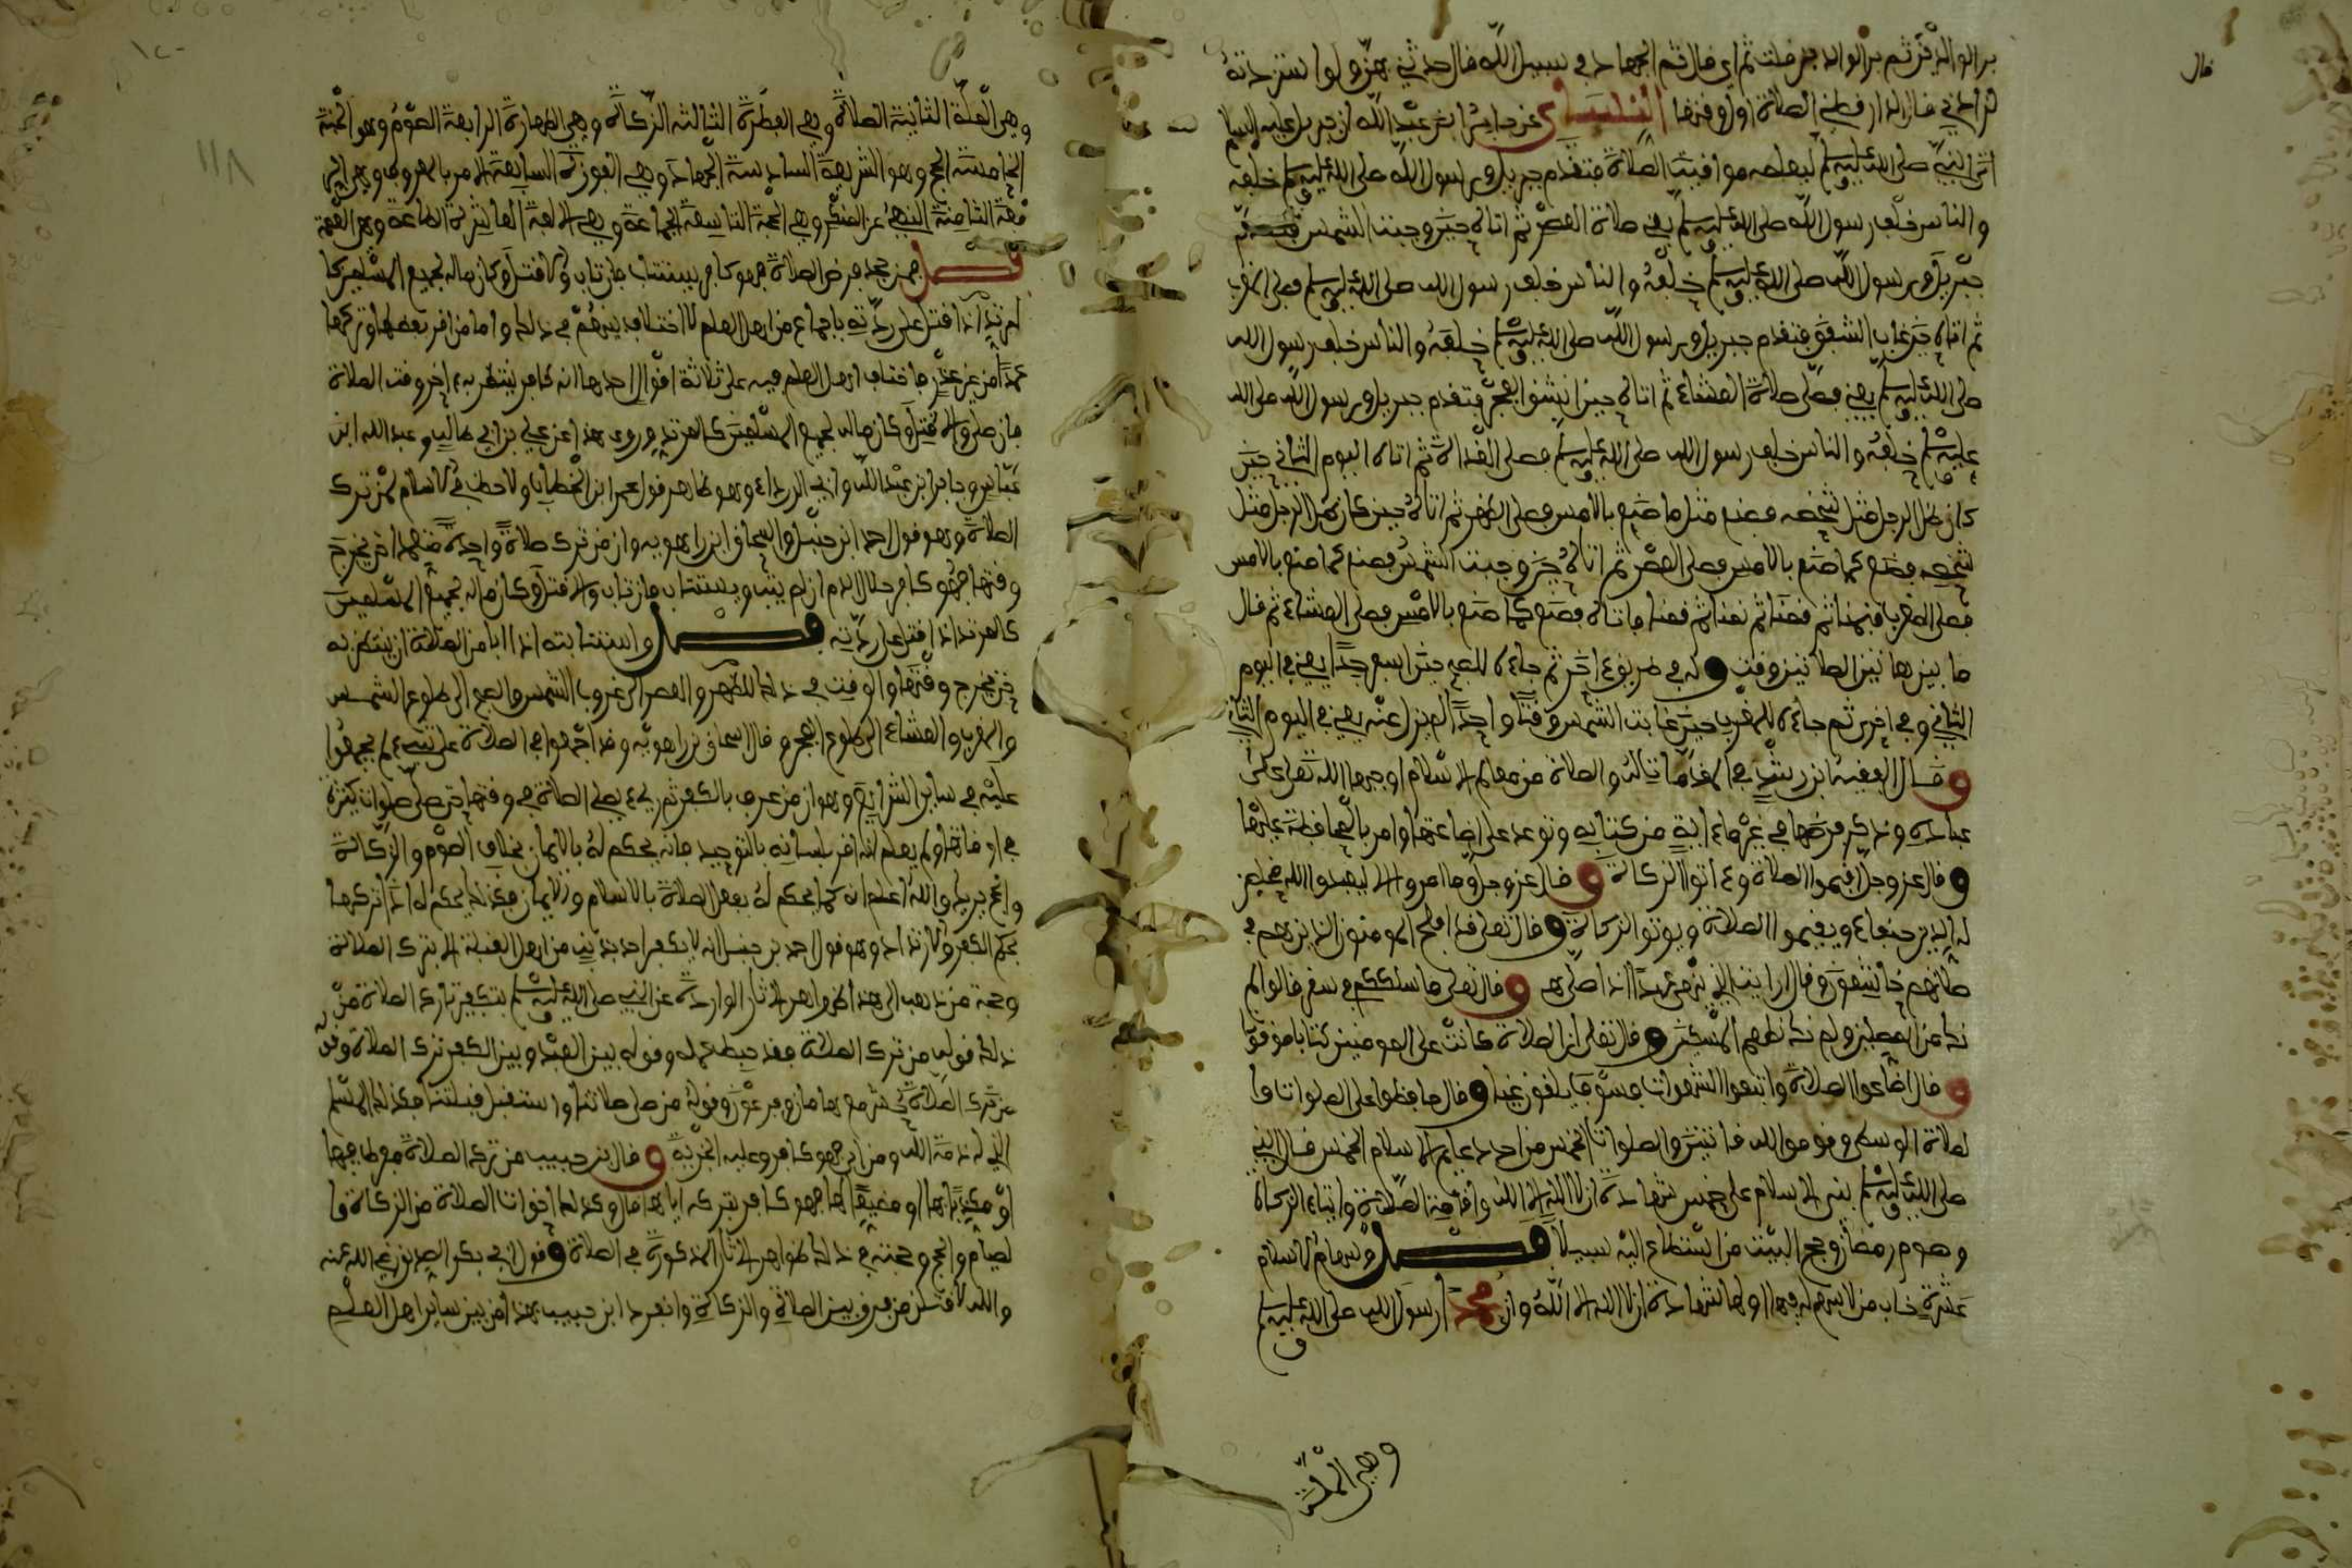 بر الوالدين ثم بر الوالدين قلت ثم اي قال ثم الجهاد في سبيل الله قال حدثني بهن ولو استزدته
لزادني قال الدارقطني الصلاة اول وقتها النسائي عن جابر ابن عبد الله ان جبريل عليه السلام
اتى النبي صلى الله عليه وسلم ليعلمه مواقيت الصلاة فتقدم جبريل ورسول الله صلى الله عليه وسلم خلفه
والناس خلف رسول الله صلى الله عليه وسلم يعني صلاة العصر ثم اتاه حين وجبت الشمس فتقدم
جبريل ورسول الله صلى الله عليه وسلم خلفه والناس خلف رسول الله صلى الله عليه وسلم فصلى المغرب
ثم اتاه حين غاب الشفق فتقدم جبريل ورسول الله صلى الله عليه وسلم خلفه والناس خلف رسول الله
صلى الله عليه وسلم يعني فصلى صلاة العشاء ثم اتاه حين انشق الفجر فتقدم جبريل ورسول الله صلى الله
عليه وسلم خلفه والناس خلف رسول الله صلى الله عليه وسلم فصلى الغداة ثم اتاه اليوم الثاني حين
كان ظل الرجل مثل شخصه فصنع مثل ما صنع بالامس فصلى الظهر ثم اتاه حين كان ظل الرجل مثل
شخصه فصنع كما صنع بالامس فصلى العصر ثم اتاه حين وجبت الشمس فصنع كما صنع بالامس
فصلى المغرب فنمنا ثم قمنا ثم نمنا ثم قمنا فاتاه فصنع كما صنع بالامس فصلى العشاء ثم قال
ما بين هاتين الصلاتين وقت وله في طريق اخر ثم جاءه للصبح حين اسفر جدا يعني في اليوم
الثاني وفي اخرى ثم جاءه للمغرب حين غابت الشمس وقتا واحدا لم يزل عنه يعني في اليوم الثاني
وقال الفقيه ابن رشد في المقدمات له والصلاة من معالم الاسلام اوجبها الله تعالى على
عباده وذكر فرضها في غير ما اية من كتابه وتوعد على اضاعتها وامر بالمحافظة عليها
وقال عز وجل اقيموا الصلاة وءاتوا الزكاة وقال عز وجل وما امروا الا ليعبدوا الله مخلصين
له الدين حنفاء ويقيموا الصلاة ويوتوا الزكاة وقال تعالى قد افلح المومنون الذين هم في
صلاتهم خاشعون وقال ارايت الذي ينهى عبدا اذا صلى وقال تعالى ما سلككم في سقر قالوا لم
نك من المصلين ولم نك نطعم المسكين وقال تعالى ان الصلاة كانت على المومنين كتابا موقوتا
وقال اضاعوا الصلاة واتبعوا الشهوات فسوف يلقون غيا وقال حافظوا على الصلوات وا
لصلاة الوسطى وقوموا لله قانتين والصلوات الخمس من احد دعايم الاسلام الخمس قال النبي
صلى الله عليه وسلم بني الاسلام على خمس شهادة ان لا اله الا الله واقامة الصلاة وايتاء الزكاة
وصوم رمضان وحج البيت من استطاع اليه سبيلا فصل وسهام الاسلام
عشرة خاب من لا سهم له فيها اولها شهادة ان لا اله الا الله وان محمدا رسول الله صلى الله عليه وسلم
وهي الملة
وهي الملة الثانية الصلاة وهي الفطرة الثالثة الزكاة وهي الطهارة الرابعة الصوم وهو الجنة
الخامسة الحج وهو الشريعة السادسة الجهاد وهي الغزوة السابعة الامر بالمعروف وهي
الثامنة النهي عن المنكر وهي الحجة التاسعة الجماعة وهي الالفة العاشرة الطاعة وهي العصمة
فصل فمن جحد فرض الصلاة فهو كافر يستتاب فان تاب والا قتل وكان ماله لجميع المسلمين كا
لمرتد اذا قتل على ردته باجماع من اهل العلم لا اختلاف بينهم في ذلك واما من اقر بفرضها وتركها
عمدا من غير عذر فاختلف اهل العلم فيه على ثلاثة اقوال احدها انه كافر ينتظر به اخر وقت الصلاة
فان صلى والا قتل وكان ماله لجميع المسلمين كالمرتد وروي هذا عن علي بن ابي طالب وعبد الله ابن
عباس وجابر ابن عبد الله وابي الدرداء وهو ظاهر قول عمر ابن الخطاب ولا حظ في الاسلام لمن ترك
الصلاة وهو قول احمد ابن حنبل واسحاق ابن راهويه وان من ترك صلاة واحدة متعمدا حتى يخرج
وقتها فهو كافر حلال الدم ان لم يتب ويستتاب فان تاب والا قتل وكان ماله لجميع المسلمين
كالمرتد اذا قتل على ردته فصل واستتابته اذا ابا من الصلاة ان ينتظر به
حتى يخرج وقتها والوقت في ذلك للظهر والعصر الى غروب الشمس والصبح الى طلوع الشمس
والمغرب والعشاء الى طلوع الفجر وقال اسحاق بن راهويه وقد اجمعوا في الصلاة على شيء لم يجمعوا
عليه في ساير الشرايع وهو ان من عرف بالكفر ثم رءي يصلي الصلاة في وقتها حتى صلى صلوات كثيرة
في اوقاتها ولم يعلم انه اقر بلسانه بالتوحيد فانه يحكم له بالايمان بخلاف الصوم والزكاة
والحج يريد والله اعلم انه كما يحكم له بفعل الصلاة بالاسلام والايمان فكذلك يحكم له اذا تركها
بحكم الكفر والارتداد وهو قول احمد بن حنبل انه لا يكفر احد بذنب من اهل القبلة الا بترك الصلاة
وحجة من ذهب الى هذا ظواهر الاثار الواردة عن النبي صلى الله عليه وسلم بتكفير تارك الصلاة من
ذلك قوله من ترك الصلاة فقد حبط عمله وقوله بين العبد وبين الكفر ترك الصلاة وقوله
من ترك الصلاة حشر مع هامان وفرعون وقوله من صلى صلاتنا واستقبل قبلتنا فذلك المسلم
الذي له ذمة الله ومن ابى فهو كافر وعليه الجزية وقال ابن حبيب من ترك الصلاة مفرطا فيها
او مكذبا بها او مضيعا لها فهو كافر بتركه اياها قال وكذلك اخوات الصلاة من الزكاة وا
لصيام والحج وحجته في ذلك ظواهر الاثار المذكورة في الصلاة وقول ابي بكر الصديق رضي الله عنه
والله لاقتلن من فرق بين الصلاة والزكاة وانفرد ابن حبيب بهذا من بين ساير اهل العلم